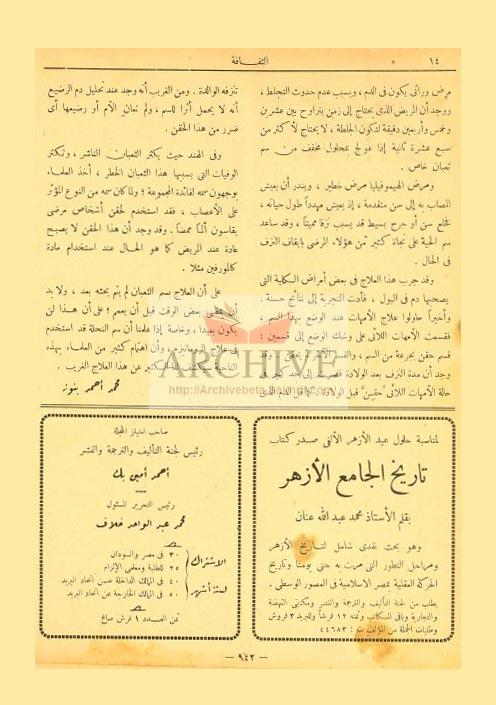 ١٤
الثقافة
مرض وراثى يكون فى الدم، ويسبب عدم حدوث التجلط،
ووجد أن المريض الذى يحتاج إلى زمن يتراوح بين عشرين
وخمس وأربعين دقيقة لتكون الجلطة، لا يحتاج لأ كثر من
سبع عشرة ثانية إذا عولج بمحلول مخفف من سم
ثعبان خاص.
ومرض الهيموفيليا مرض خطير، ويندر أن يعيش
المصاب به إلى سن متقدمة، إذ يعيش مهدداً طول حياته،
فخلع سن أو جرح بسيط قد يسبب نزفا مميتا، وقد ساعد
سم الحية على نجاة كثير من هؤلاء المرضى بإيقاف النزف
فى الحال.
وقد جرب هذا العلاج فى بعض أمراض الكلية التى
يصحبها دم فى البول، فأدت التجربة إلى نتائج حسنة.
وأخيراً حاولوا علاج الأمهات عند الوضع بهذا السم،
فقسمت الأمهات اللائى على وشك الوضع إلى قسمين:
قسم حقن بجرعة من السم، والقسم الآخر لم يحقن، وقد
وجد أن مدة النزف بعد الولادة إلى حد كبير فى
حالة الأمهات اللائى حقن قبل الولادة، كما قل الدم الذى
تنزفه الوالدة. ومن الغريب أنه وجد عند تحليل دم الرضيع
أنه لا يحمل أثرا للسم، ولم تعان الأم أو رضيعها أى
ضرر من هذا الحقن.
وفى الهند حيث يكثر الثعبان الناشر، وتكثر
الوفيات التى يسببها هذا الثعبان الخطر، أخذ العلماء
يوجهون سمه لفائدة المجموعة؛ ولما كان سمه من النوع المؤثر
على الأعصاب، فقد استخدم لحقن أشخاص مرضى
يقاسون ألماً ممضاً. وقد وجد أن هذا الحقن لا يصبح
عادة عند المريض كما هو الحال عند استخدام مادة
كالمورفين مثلا.
على أن العلاج بسم الثعبان لم يتم بحثه بعد، ولا بد
أن يمضى بعض الوقت قبل أن يعمم؛ على أن هذا لن
يكون بعيدا، وخاصة إذا علمنا أن سم النحلة قد استخدم
فى علاج الروماتيزم، وأن اهتمام كثير من العلماء بهذه
الناحية الكثير عن هذا العلاج الغريب.
محمد أحمد بنونه
ARCHIVE
http://Archivebeta.Sakhrit.com
لمناسبة حلول عيد الأزهر الألفى صدر كتاب
تاريخ الجامع الأزهر
بقلم الأستاذ محمد عبد الله عنان
وهو بحث نقدى شامل لتاريخ الأزهر
ومراحل التطور التى مرت به حتى يومنا وتاريخ
الحركة العقلية بمصر الاسلامية فى العصور الوسطى.
يطلب من لجنة التأليف والترجمة والنشر ومكتبتى النهضة
والتجارية وباقى المكتبات وثمنه ١٢ قرشاً والبريد ٣ قروش
وطلبات الجملة من المؤلف : ٤٤٦٨٣
صاحب امتياز المجلة
رئيس لجنة التأليف والترجمة والنشر
أحمد أمين بك
رئيس التحرير المسئول
محمد عبد الواحد خلاف
الاشتراك لستة أشهر
٣٠ فى مصر والسودان
٢٥ للطلبة ومعلمى الإلزام
٤٠ فى الممالك الداخلة ضمن اتحاد البريد
٥٠ فى الممالك الخارجة عن اتحاد البريد
ثمن العدد ١ قرش صاغ
— ٩٤٢ —